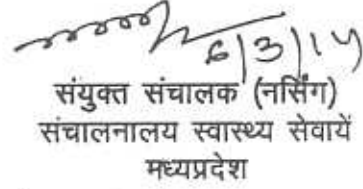 6/3/14
संयुक्त संचालक (नर्सिंग)
संचालनालय स्वास्थ्य सेवायें
मध्यप्रदेश